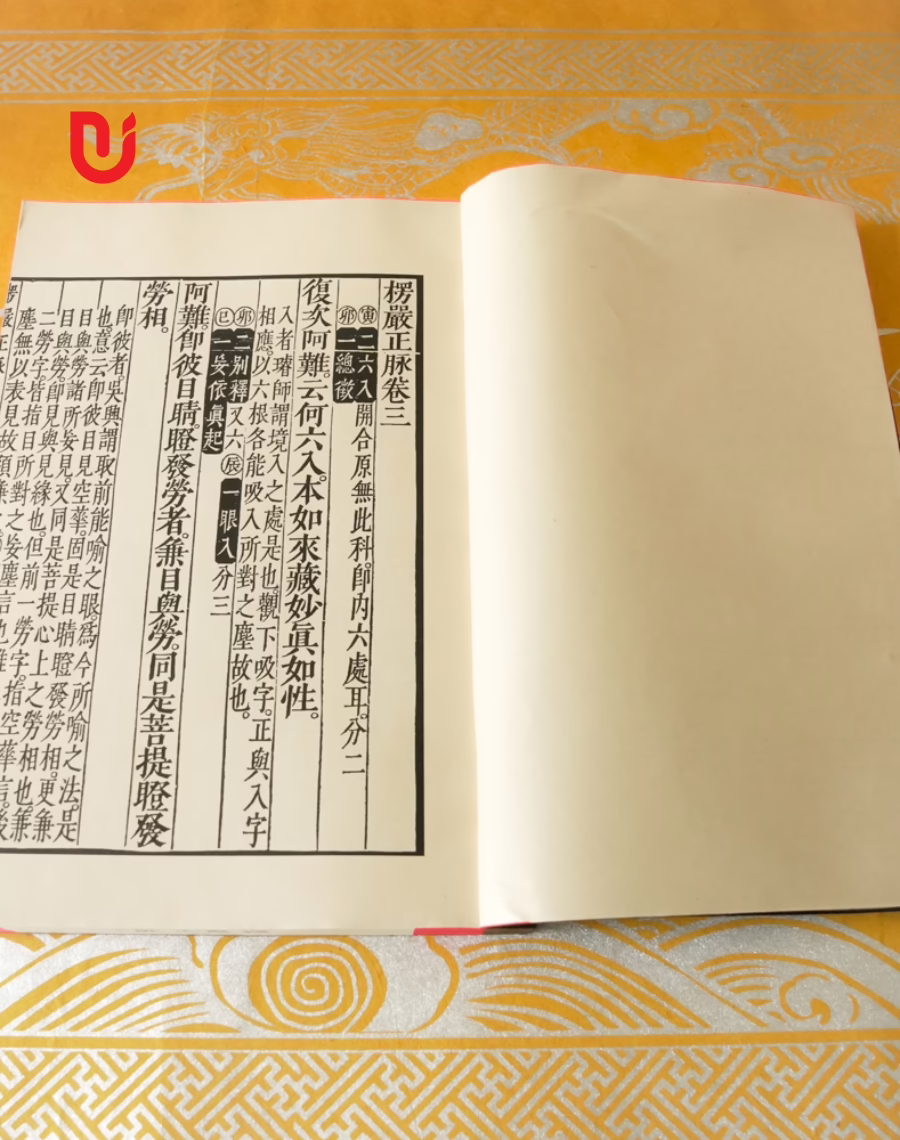 楞嚴正脉卷三
寅二六入開合原無此科。卽内六處耳。分二
卯一總徵
復次阿難。云何六入。本如來藏妙眞如性。
入者。璿師謂境入之處是也。觀下吸字。正與入字
相應。以六根各能吸入所對之塵故也。
卯二別釋又六辰一眼入分三
巳一妄依眞起
阿難。卽彼目睛。瞪發勞者。兼目與勞。同是菩提瞪發
勞相。
卽彼者。吳興謂取前能喻之眼。爲今所喻之法。是
也。意云卽彼目見空華。固是目睛瞪發勞相。更兼
目與勞。諸所妄見。又同是菩提心上之勞相也。兼
目與勞。卽見與見緣也。但前一勞字。指空華言。後
二勞字。皆指目所對之妄塵言也。
塵無以表見故